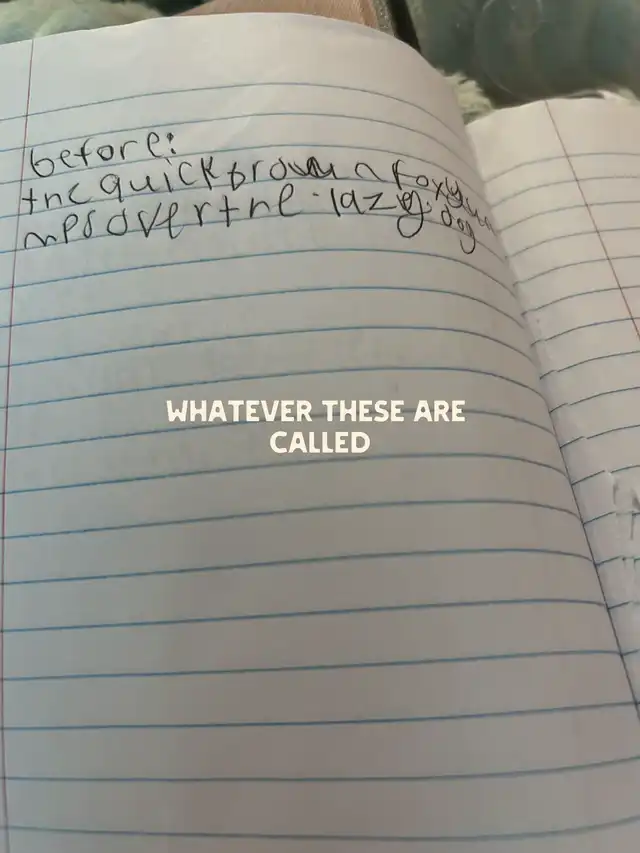 before:
the quick brown n fox ju
mps over the lazy dog
WHATEVER THESE ARE
CALLED